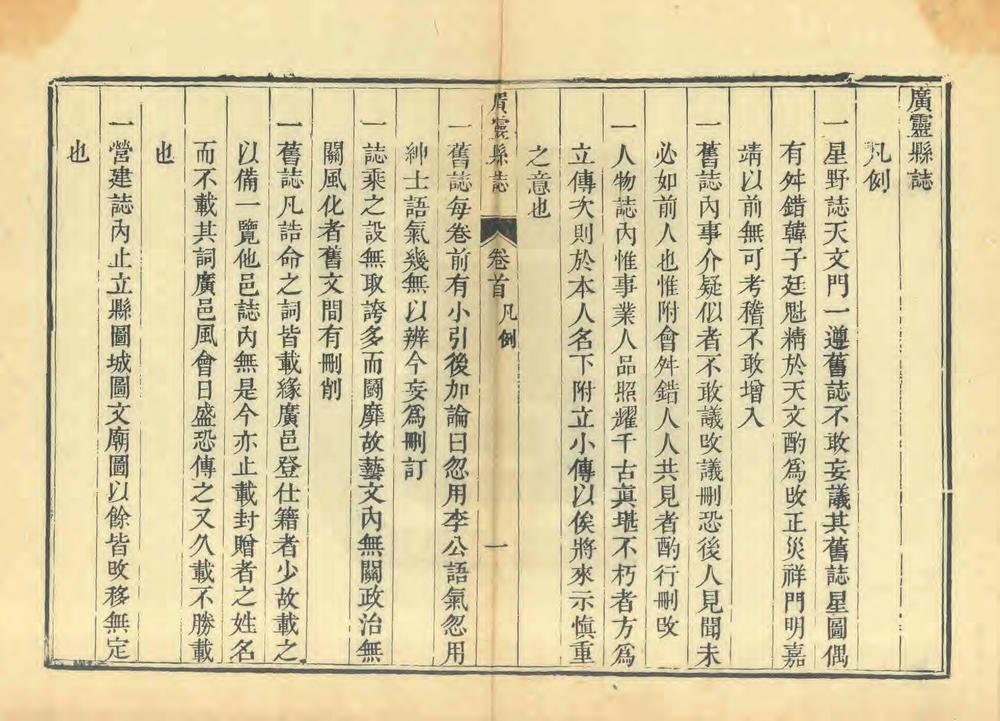 廣靈縣誌
凡例
一星野誌天文門一遵舊誌不敢妄議其舊誌星圖偶
有舛錯韓子廷魁精於天文酌爲改正災祥門明嘉
靖以前無可考稽不敢增入
一舊誌內事介疑似者不敢議改議刪恐後人見聞未
必如前人也惟附會舛錯人人共見者酌行刪改
一人物誌內惟事業人品照耀千古眞堪不朽者方爲
立傳次則於本人名下附立小傳以俟將來示愼重
之意也
廣靈縣誌 卷首 凡例 一
一舊誌每卷前有小引後加論曰忽用李公語氣忽用
紳士語氣幾無以辨今妄爲刪訂
一誌乘之設無取誇多而鬪靡故藝文內無關政治無
關風化者舊文間有刪削
一舊誌凡誥命之詞皆載緣廣邑登仕籍者少故載之
以備一覽他邑誌內無是今亦止載封贈者之姓名
而不載其詞廣邑風會日盛恐傳之又久載不勝載
也
一營建誌內止立縣圖城圖文廟圖以餘皆改移無定
也